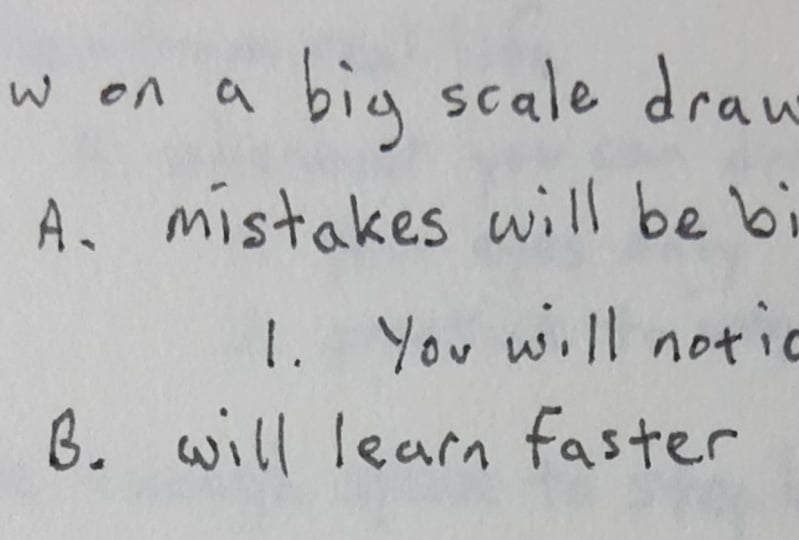 w on a big scale draw
A. mistakes will be bi
1. You will notic
B. will learn faster